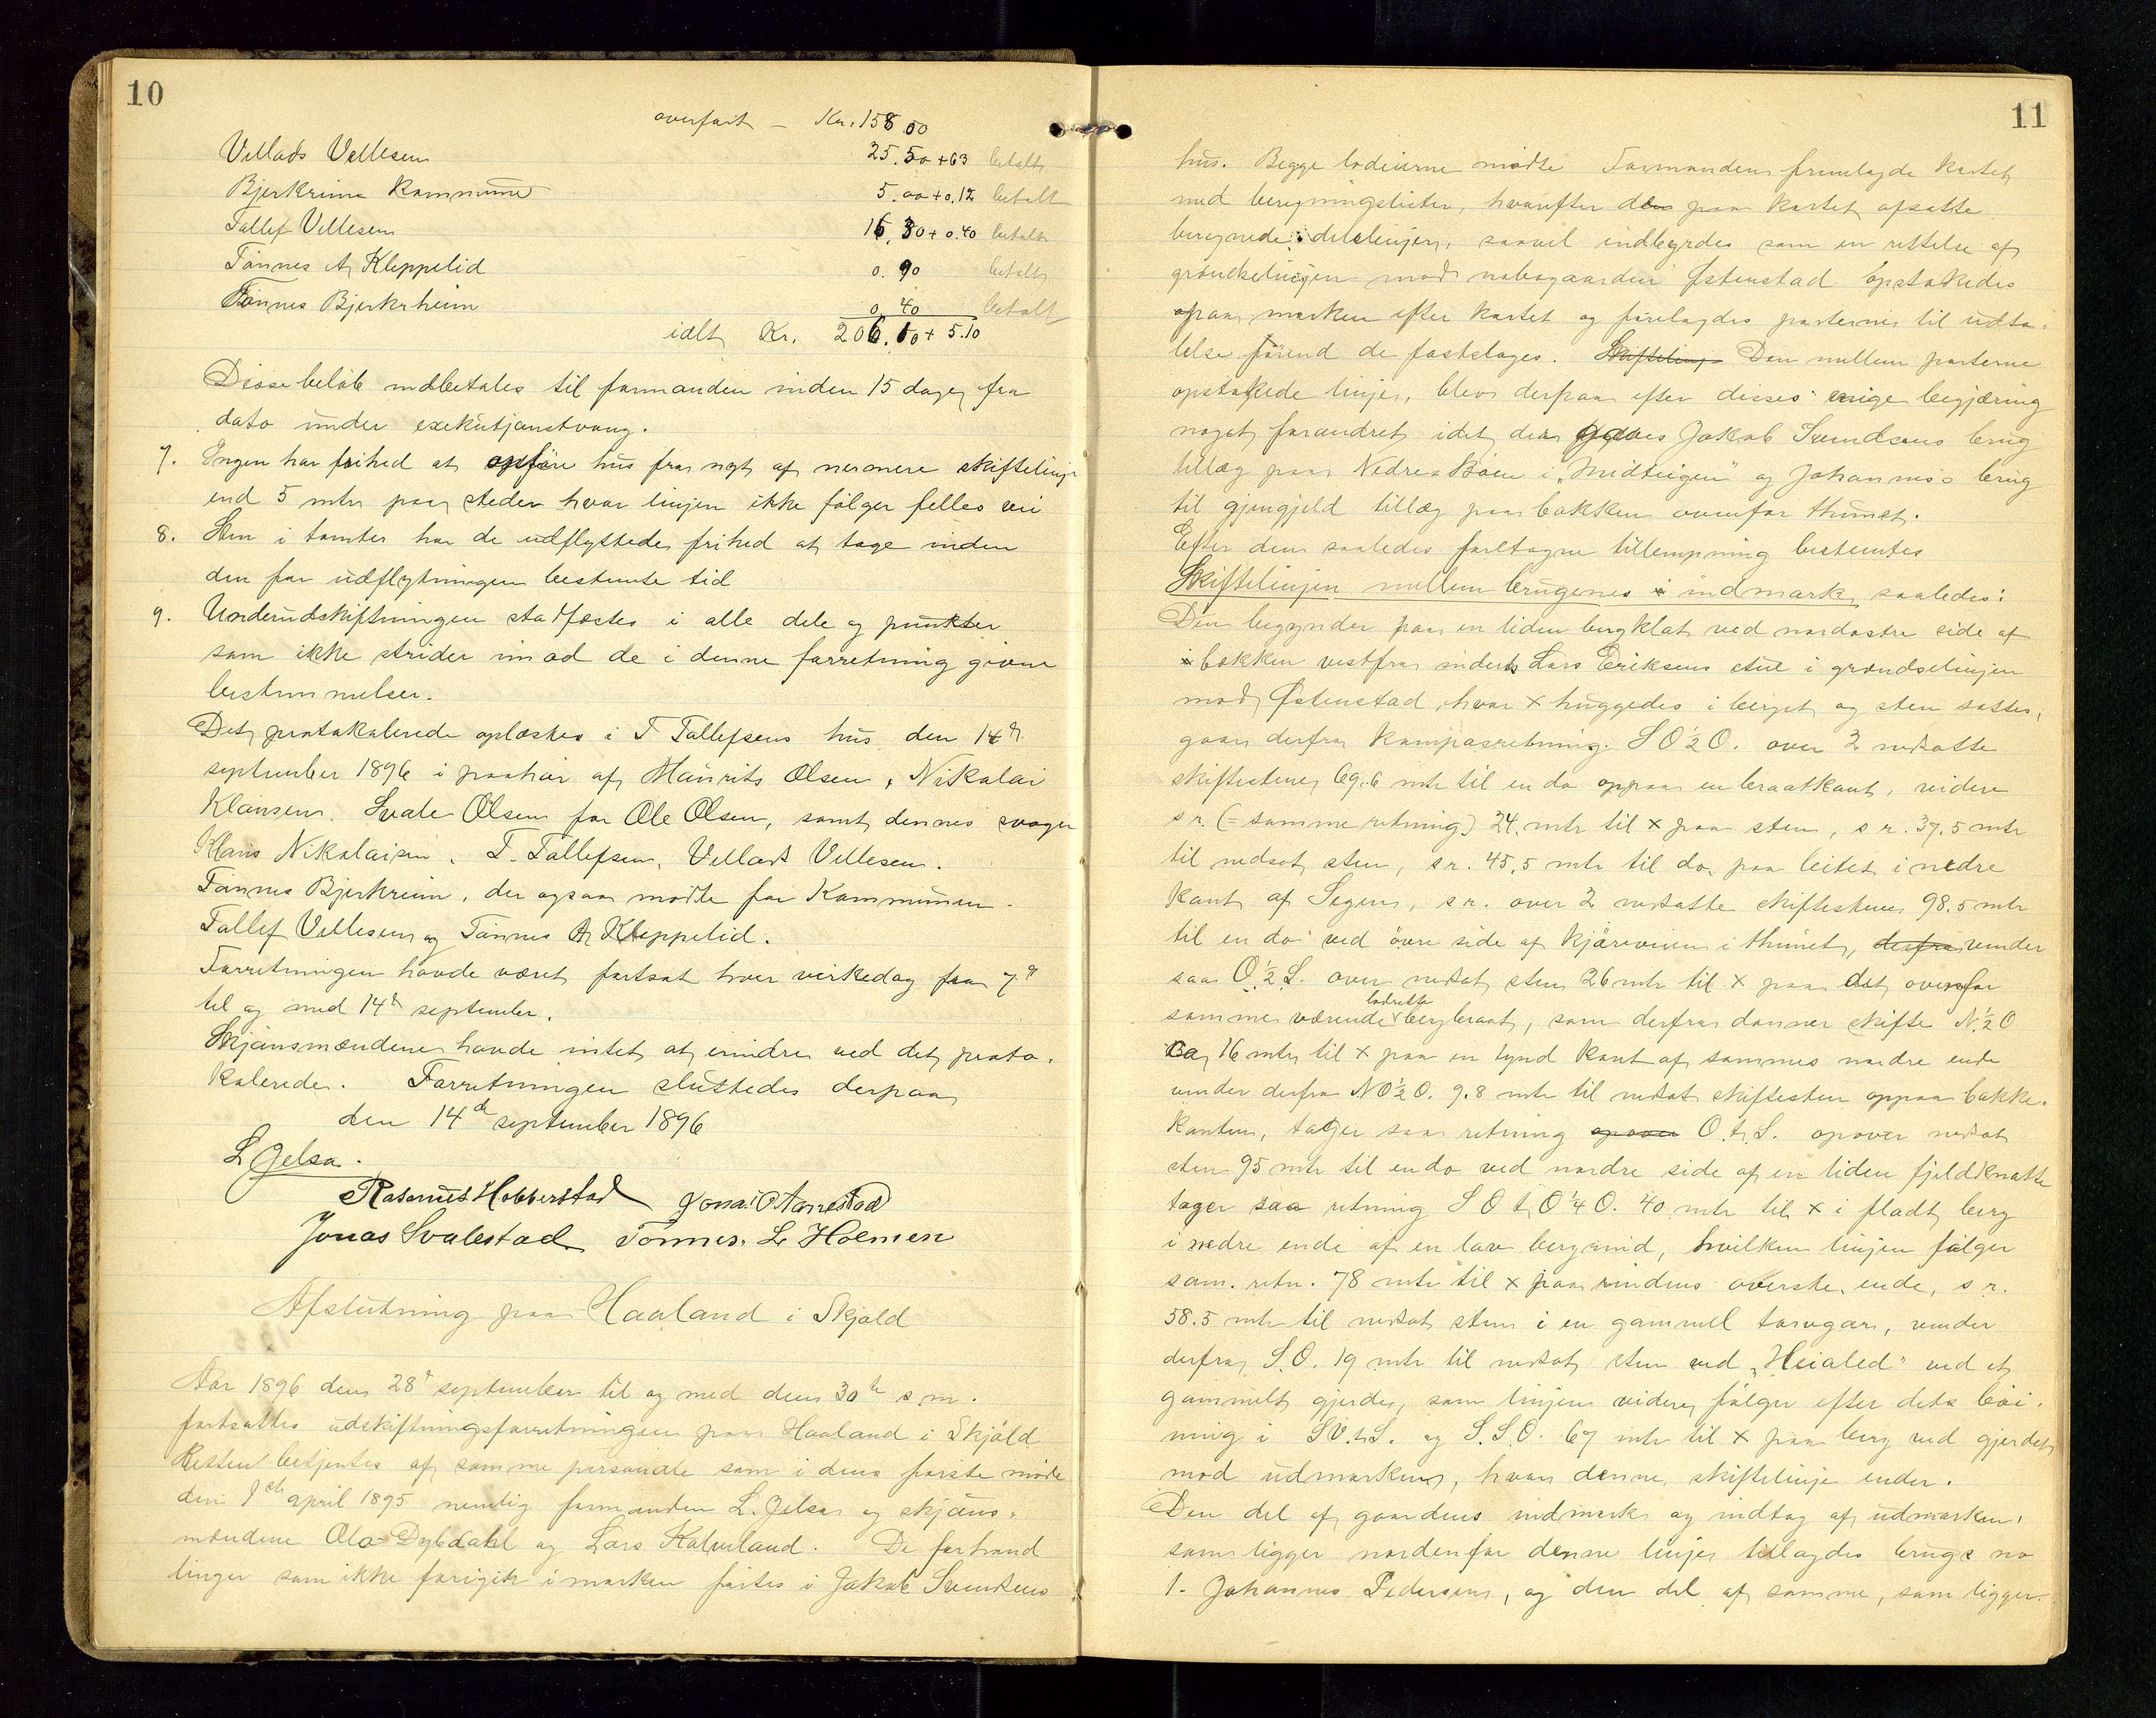 10
overført – Kr. 158.00
Vellads Vellesen 25.50 + 63 betalt
Bjerkreim Kommune 5.00 + 0.12 betalt
Tallef Vellesen 16.30 + 0.40 betalt
Tønnes A. Kleppelid 0.90 betalt
Tønnes Bjerkrheim 0.40 betalt
ialt Kr. 206.10 + 5.10
Disse beløb indbetales til formanden inden 15 dage fra
dato under exekutjonstvang.
7. Ingen har frihed at opføre hus fra nyt af nermere skiftelinje
end 5 mtr paa steder hvor linjen ikke følger felles vei
8. Hus i tomter har de udflyttede frihed at tage inden
den for udflytningen bestemte tid
9. Underudskiftningen stadfæstes i alle dele og punkter
som ikke strider imod de i denne forretning givne
bestemmelser.
Det protokolerede oplæstes i T Tallefsens hus den 14de
september 1896 i paahør af Maurits Olsen, Nikolai
Klausen, Svale Olsen for Ole Olsen, samt dennes svoger
Hans Nikolaisen, T. Tallefsen, Vellads Vellesen.
Tønnes Bjerkreim, der ogsaa mødte for Kommunen.
Tallef Vellesen og Tønnes A. Kleppelid.
Forretningen havde været fortsat hver virkedag fra 7de
til og med 14de september.
Skjønsmændene havde intet at erindre ved det proto-
kolerede. Forretningen sluttedes derpaa
den 14de september 1896
L Gelsa.
Rasmus Hobberstad Jonas O Aarrestad
Jonas Svalestad Tönnes. L Holmen
Afslutning paa Haaland i Skjold
Aar 1896 den 28de september til og med den 30te s.m.
fortsattes udskiftningsforretningen paa Haaland i Skjold
Retten betjentes af samme personale som i dens første møde
den 9de april 1895 nemlig formanden L. Gelsa og skjøns-
mændene Ola Dybdahl og Lars Kalveland. De forhand
linger som ikke foregik i marken førtes i Jakob Svendsens
11
hus. Begge lodeierne mødte Formanden fremlagde kartet
med beregningslister, hvorefter den paa kartet afsatte
beregnede delelinjer, saavel indbyrdes som en rettelse af
grændselinjen mod nabogaarden Østenstad opstakedes
paa marken efter kartet og forelagdes parterne til udta-
lelse førend de fastsloges. Skiftelinj Den mellem parterne
opstakede linje, blev derpaa efter disses enige begjæring
noget forandret idet der gaves Jakob Svendsens brug
tillæg paa Nedre-Bøen i "Midteigen" og Johannes's brug
til gjengjeld tillæg paa bakken ovenfor thunet.
Efter den saaledes foretagne tillempning bestemtes
Skiftelinjen mellem brugenes indmark saaledes:
Den begynder paa en liden bergklat ved nordøstre side af
bækken vestfra underst Lars Eriksens stue i grændselinjen
mod Østenstad, hvor x huggedes i berget og sten sattes,
gaar derfra kompasretning. S O ½ O. over 2 nedsatte
skiftestene 69.6 mtr til en do oppaa en braatkant, videre
s r. (= samme retning) 24. mtr til x paa sten, s r. 37.5 mtr
til nedsat sten, s r. 45,5 mtr til do paa leitet i nedre
kant af Legene, s r. over 2 nedsatte skiftestene 98.5 mtr
til en do ved øvre side af kjøreveien i thunet, derfra vender
saa O. ½ S. over nedsat sten 26 mtr til x paa det ovenfor
samme værende lodrette bergbraat, som derfra danner skifte N. ½ O
Ca 16 mtr til x paa en tynd kant af sammes nordre ende
vender derfra N O ½ O. 9.8 mtr til nedsat skiftesten oppaa bakke-
kanten, tager saa retning opover O. t. S. opover nedsat
sten 95 mtr til en do ved nordre side af en liden fjeldknatte
tager saa retning S O t. O ¼ O. 40 mtr til x i fladt berg
i nedre ende af en lav bergrind, hvilken linjen følger
sam. retn. 78 mtr til x paa rindens øverste ende, s r.
58.5 mtr til nedsat sten i en gammel torvgar, vender
derfra S. O. 19 mtr til nedsat sten ved "Heialed" ved et
gammelt gjerde, som linjen videre følger efter dets bøi-
ning i S V. t. S. og S. S. O. 67 mtr til x paa berg ved gjerdet
mod udmarken, hvor denne skiftelinje ender.
Den del af gaardens indmark og indtag af udmarken,
som ligger nordenfor denne linje tillagdes brugs no
1. Johannes Pedersens, og den del af samme, som ligger